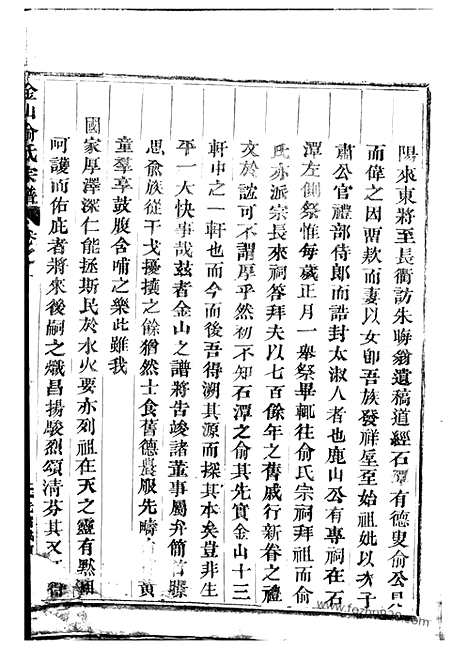 陽來東將至長衢訪朱聯翁遺稿道經石潭有德叟俞公見
而偉之因畱欵而妻以女卽吾族發祥星至始祖妣以次子
肅公官禮部侍郎而誥封太淑人者也鹿山公有專祠在石
潭左側祭惟每歲正月一舉祭畢輒往俞氏宗祠拜祖而俞
氏亦派宗長來祠答拜夫以七百餘年之舊戚行新春之禮
文於誼可不謂厚乎然初不知石潭之俞其先實金山十三
軒中之一軒也而今而後吾得溯其源而探其本矣豈非生
平一大快事哉茲者金山之譜將告竣諸董事屬弁簡首
思俞族從干戈擾攘之餘猶然士食舊德農服先疇 黃
童羣享鼓腹含哺之樂此雖我
國家厚澤深仁能拯斯民於水火要亦列祖在天之靈有默
呵護而佑庇者將來後嗣之熾昌揚駿烈頌清芬其又
金山俞氏宗譜 卷之
www.fozhu920.com